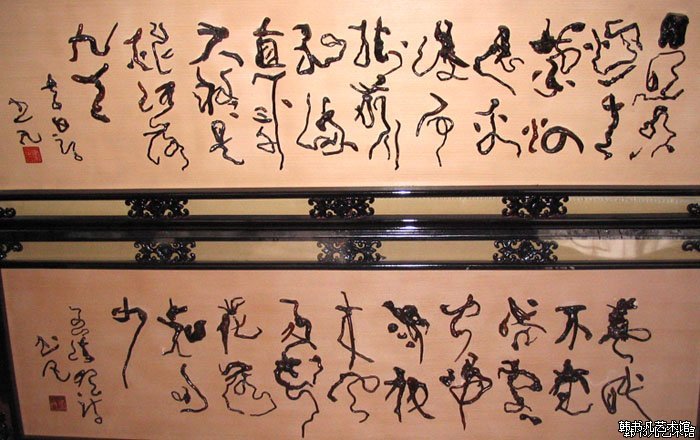 日照香
炉生
紫烟
遥看
瀑布
挂前川
飞流
直下三千
尺疑是
银河落
九天
李白诗
书凡
春眠
不觉
晓处
处闻
啼鸟夜
来风
雨声
花落
知多
少
孟浩然诗
书凡
韩书凡艺术馆